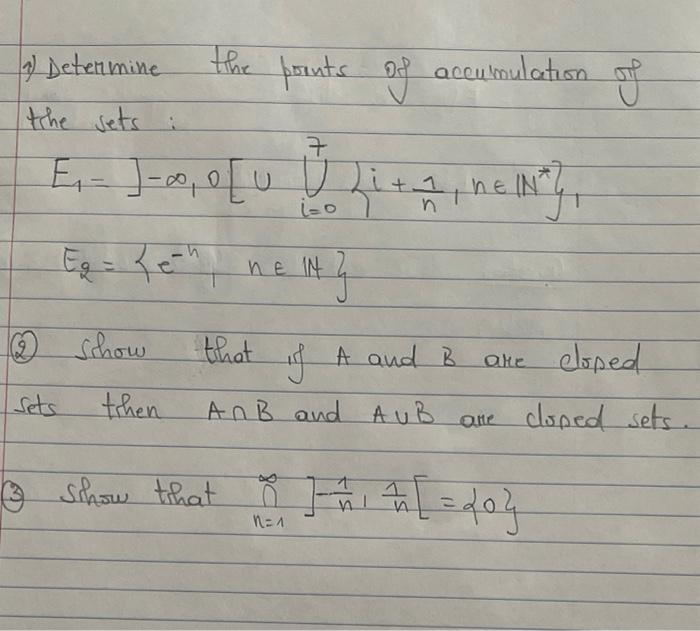 1) Determine the points of accumulation of
the sets :
E₁ = ]-∞, 0[ ∪ ⋃_{i=0}^{7} {i + 1/n, n ∈ ℕ*},
E₂ = {e⁻ⁿ, n ∈ ℕ}
② Show that if A and B are closed
sets then A∩B and A∪B are closed sets.
③ Show that ⋂_{n=1}^{∞} ]-1/n, 1/n[ = {0}